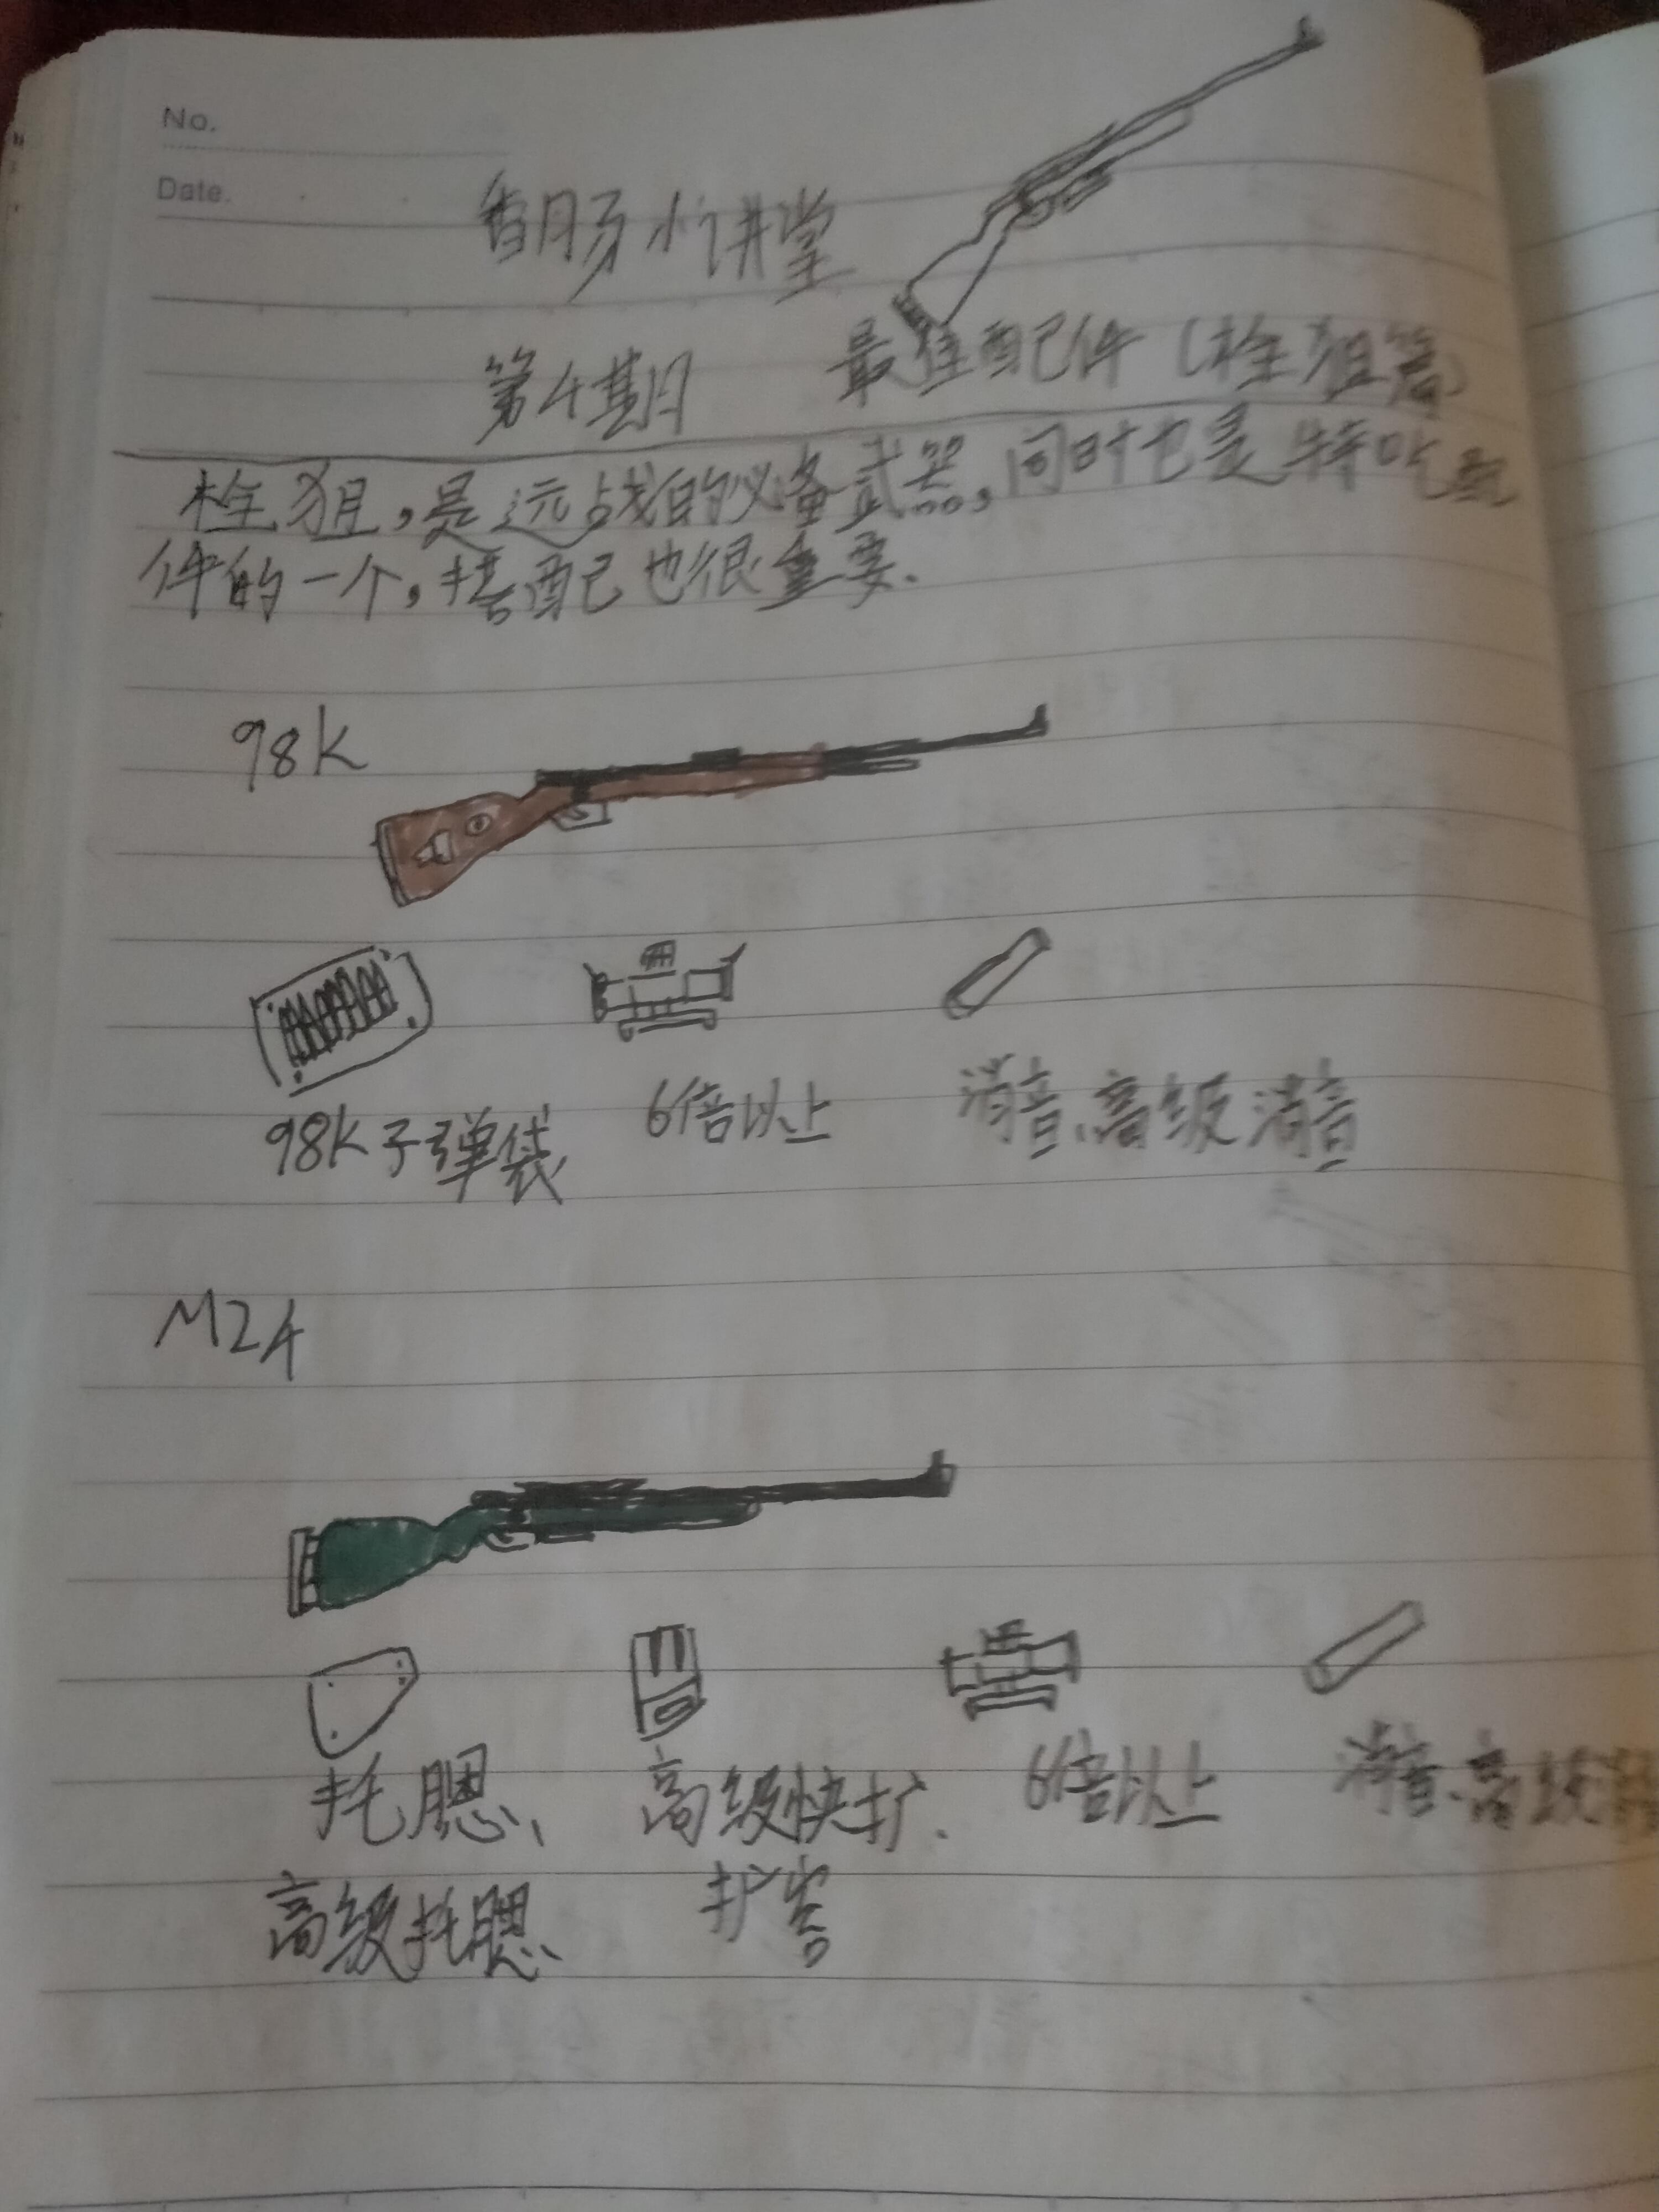 No.
Date.
香肠小讲堂
第4期 最佳配件（栓狙篇）
栓狙，是远战的必备武器，同时也是特吃配
件的一个，搭配也很重要.
98K
98K子弹袋 6倍以上 消音、高级消音
M24
托腮、 高级快扩、 6倍以上 消音、高级消
高级托腮 扩容